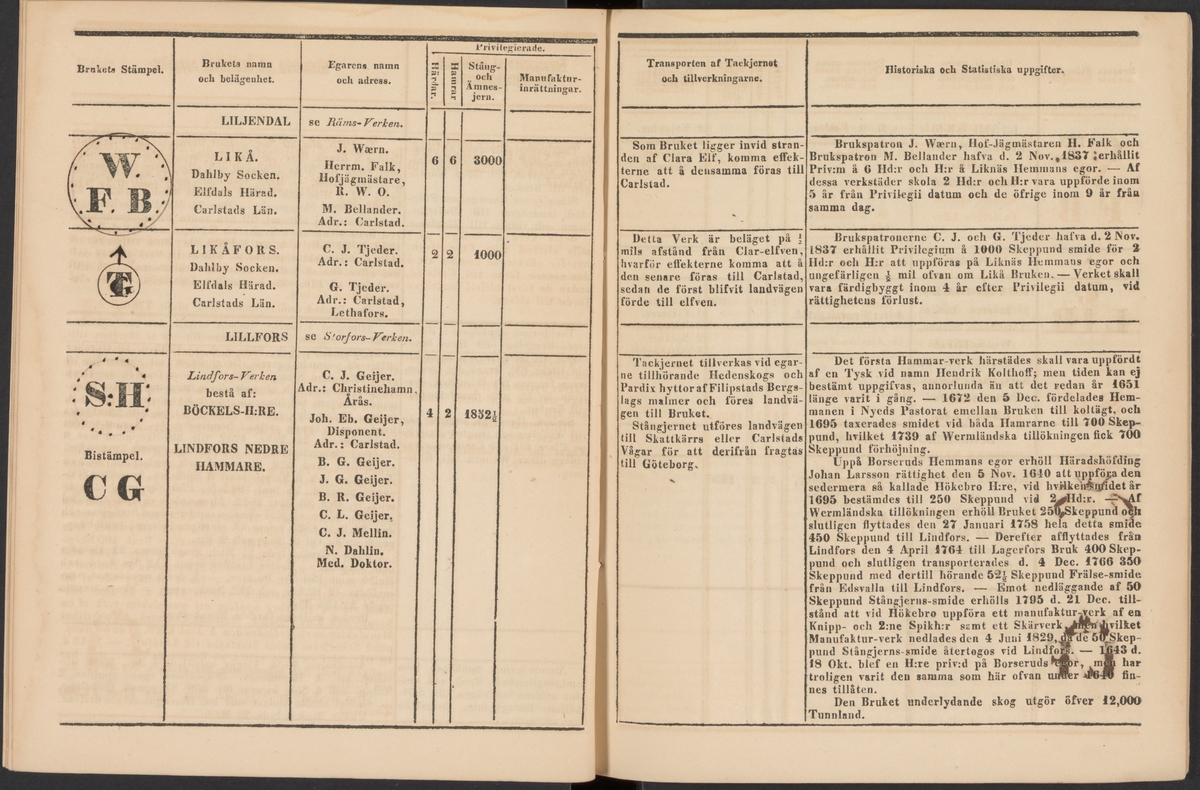 Privilegierade.
Brukets Stämpel.
Brukets namn
och belägenhet.
Egarens namn
och adress.
Härdar.
Hamrar
Stång-
och
Ämnes-
jern.
Manufaktur-
inrättningar.
LILJENDAL
se Räms-Verken.
W.
F. B
LIKÅ.
Dahlby Socken.
Elfdals Härad.
Carlstads Län.
J. Wærn.
Herrm. Falk,
Hofjägmästare,
R. W. O.
M. Bellander.
Adr.: Carlstad.
6 6 3000
LIKÅFORS.
Dahlby Socken.
Elfdals Härad.
Carlstads Län.
C. J. Tjeder.
Adr.: Carlstad.
G. Tjeder.
Adr.: Carlstad,
Lethafors.
2 2 1000
LILLFORS
se Storfors-Verken.
S:H
Bistämpel.
C G
Lindfors-Verken
bestå af:
BÖCKELS-H:RE.
LINDFORS NEDRE
HAMMARE.
C. J. Geijer.
Adr.: Christinehamn.
Årås.
Joh. Eb. Geijer,
Disponent.
Adr.: Carlstad.
B. G. Geijer.
J. G. Geijer.
B. R. Geijer.
C. L. Geijer.
C. J. Mellin.
N. Dahlin.
Med. Doktor.
4 2 1852½
Transporten af Tackjernet
och tillverkningarne.
Historiska och Statistiska uppgifter.
Som Bruket ligger invid stran-
den af Clara Elf, komma effek-
terne att å densamma föras till
Carlstad.
Brukspatron J. Wærn, Hof-Jägmästaren H. Falk och
Brukspatron M. Bellander hafva d. 2 Nov. 1837 erhållit
Priv:m å 6 Hd:r och H:r å Liknäs Hemmans egor. — Af
dessa verkstäder skola 2 Hd:r och H:r vara uppförde inom
5 år från Privilegii datum och de öfrige inom 9 år från
samma dag.
Detta Verk är beläget på ½
mils afstånd från Clar-elfven,
hvarför effekterne komma att å
den senare föras till Carlstad,
sedan de först blifvit landvägen
förde till elfven.
Brukspatronerne C. J. och G. Tjeder hafva d. 2 Nov.
1837 erhållit Privilegium å 1000 Skeppund smide för 2
Hd:r och H:r att uppföras på Liknäs Hemmans egor och
ungefärligen ½ mil ofvan om Likå Bruken. — Verket skall
vara färdigbyggt inom 4 år efter Privilegii datum, vid
rättighetens förlust.
Tackjernet tillverkas vid egar-
ne tillhörande Hedenskogs och
Pardix hyttor af Filipstads Bergs-
lags malmer och föres landvä-
gen till Bruket.
Stångjernet utföres landvägen
till Skattkärrs eller Carlstads
Vågar för att derifrån fragtas
till Göteborg.
Det första Hammar-verk härstädes skall vara uppfördt
af en Tysk vid namn Hendrik Kolthoff; men tiden kan ej
bestämt uppgifvas, annorlunda än att det redan år 1651
länge varit i gång. — 1672 den 5 Dec. fördelades Hem-
manen i Nyeds Pastorat emellan Bruken till koltägt, och
1695 taxerades smidet vid båda Hamrarne till 700 Skep-
pund, hvilket 1739 af Wermländska tillökningen fick 700
Skeppund förhöjning.
Uppå Borseruds Hemmans egor erhöll Häradshöfding
Johan Larsson rättighet den 5 Nov. 1640 att uppföra den
sedermera så kallade Hökebro H:re, vid hvilken smidet år
1695 bestämdes till 250 Skeppund vid 2 Hd:r. — Af
Wermländska tillökningen erhöll Bruket 250 Skeppund och
slutligen flyttades den 27 Januari 1758 hela detta smide
450 Skeppund till Lindfors. — Derefter afflyttades från
Lindfors den 4 April 1764 till Lagerfors Bruk 400 Skep-
pund och slutligen transporterades d. 4 Dec. 1766 350
Skeppund med dertill hörande 52½ Skeppund Frälse-smide
från Edsvalla till Lindfors. — Emot nedläggande af 50
Skeppund Stångjerns-smide erhölls 1795 d. 21 Dec. till-
stånd att vid Hökebro uppföra ett manufaktur-verk af en
Knipp- och 2:ne Spikh:r samt ett Skärverk, men hvilket
Manufaktur-verk nedlades den 4 Juni 1829, då de 50 Skep-
pund Stångjerns-smide återtogos vid Lindfors. — 1643 d.
18 Okt. blef en H:re priv:d på Borseruds egor, men har
troligen varit den samma som här ofvan under 1640 fin-
nes tillåten.
Den Bruket underlydande skog utgör öfver 12,000
Tunnland.